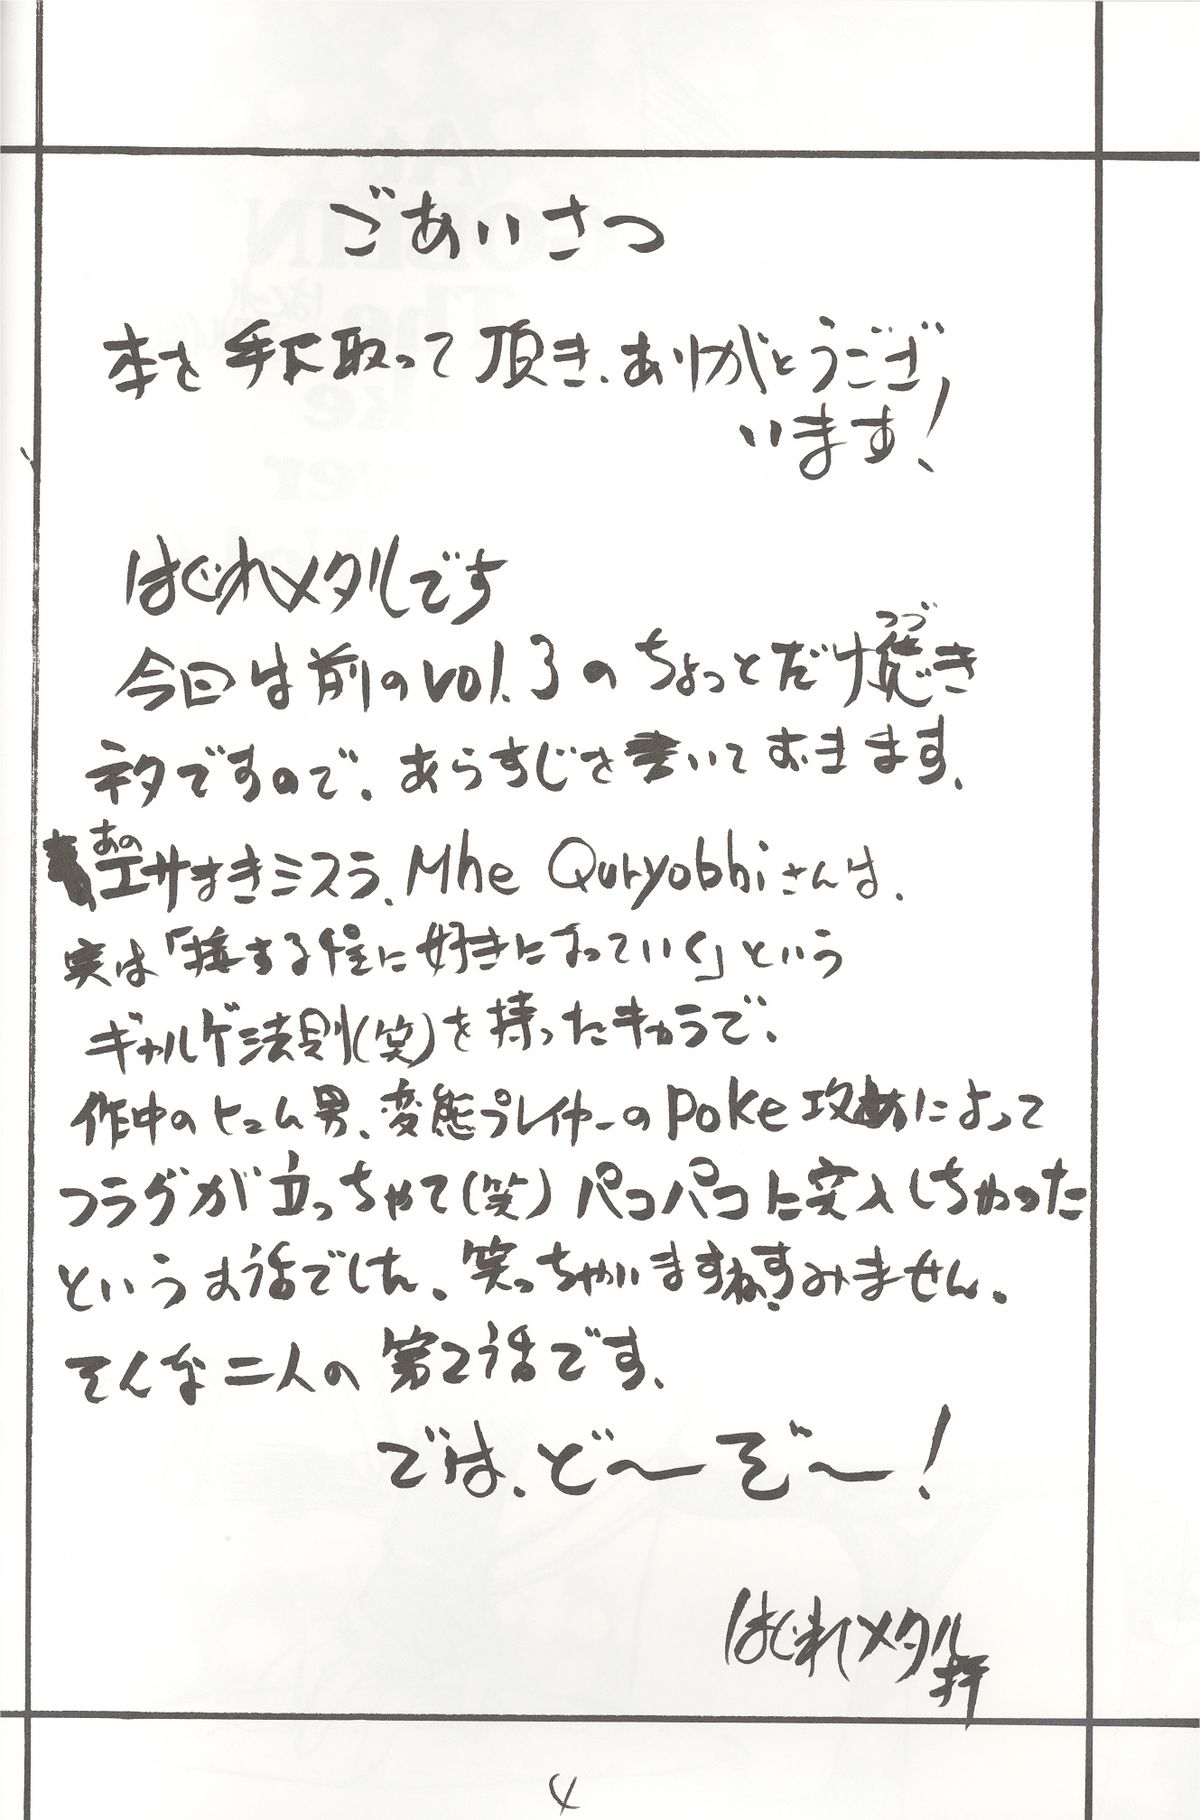 ごあいさつ
本を手に取って頂き、ありがとうござ
います!
はぐれメタルでち
今回は前のvol.3のちょっとだけ続き
つづ
ネタですので、あらすじを書いておきます。
あの
エサまきミスラ、Mhe Quryobhiさんは、
実は「接する程に好きになっていく」という
ギャルゲ法則(笑)を持ったキャラで、
作中のヒュム男、変態プレイヤーのpoke攻めによって
フラグが立っちゃて(笑)パコパコに突入しちゃった
というお話でした。笑っちゃいますね。すみません。
そんな二人の第2話です。
では、ど〜ぞ〜!
はぐれメタル
拝
4